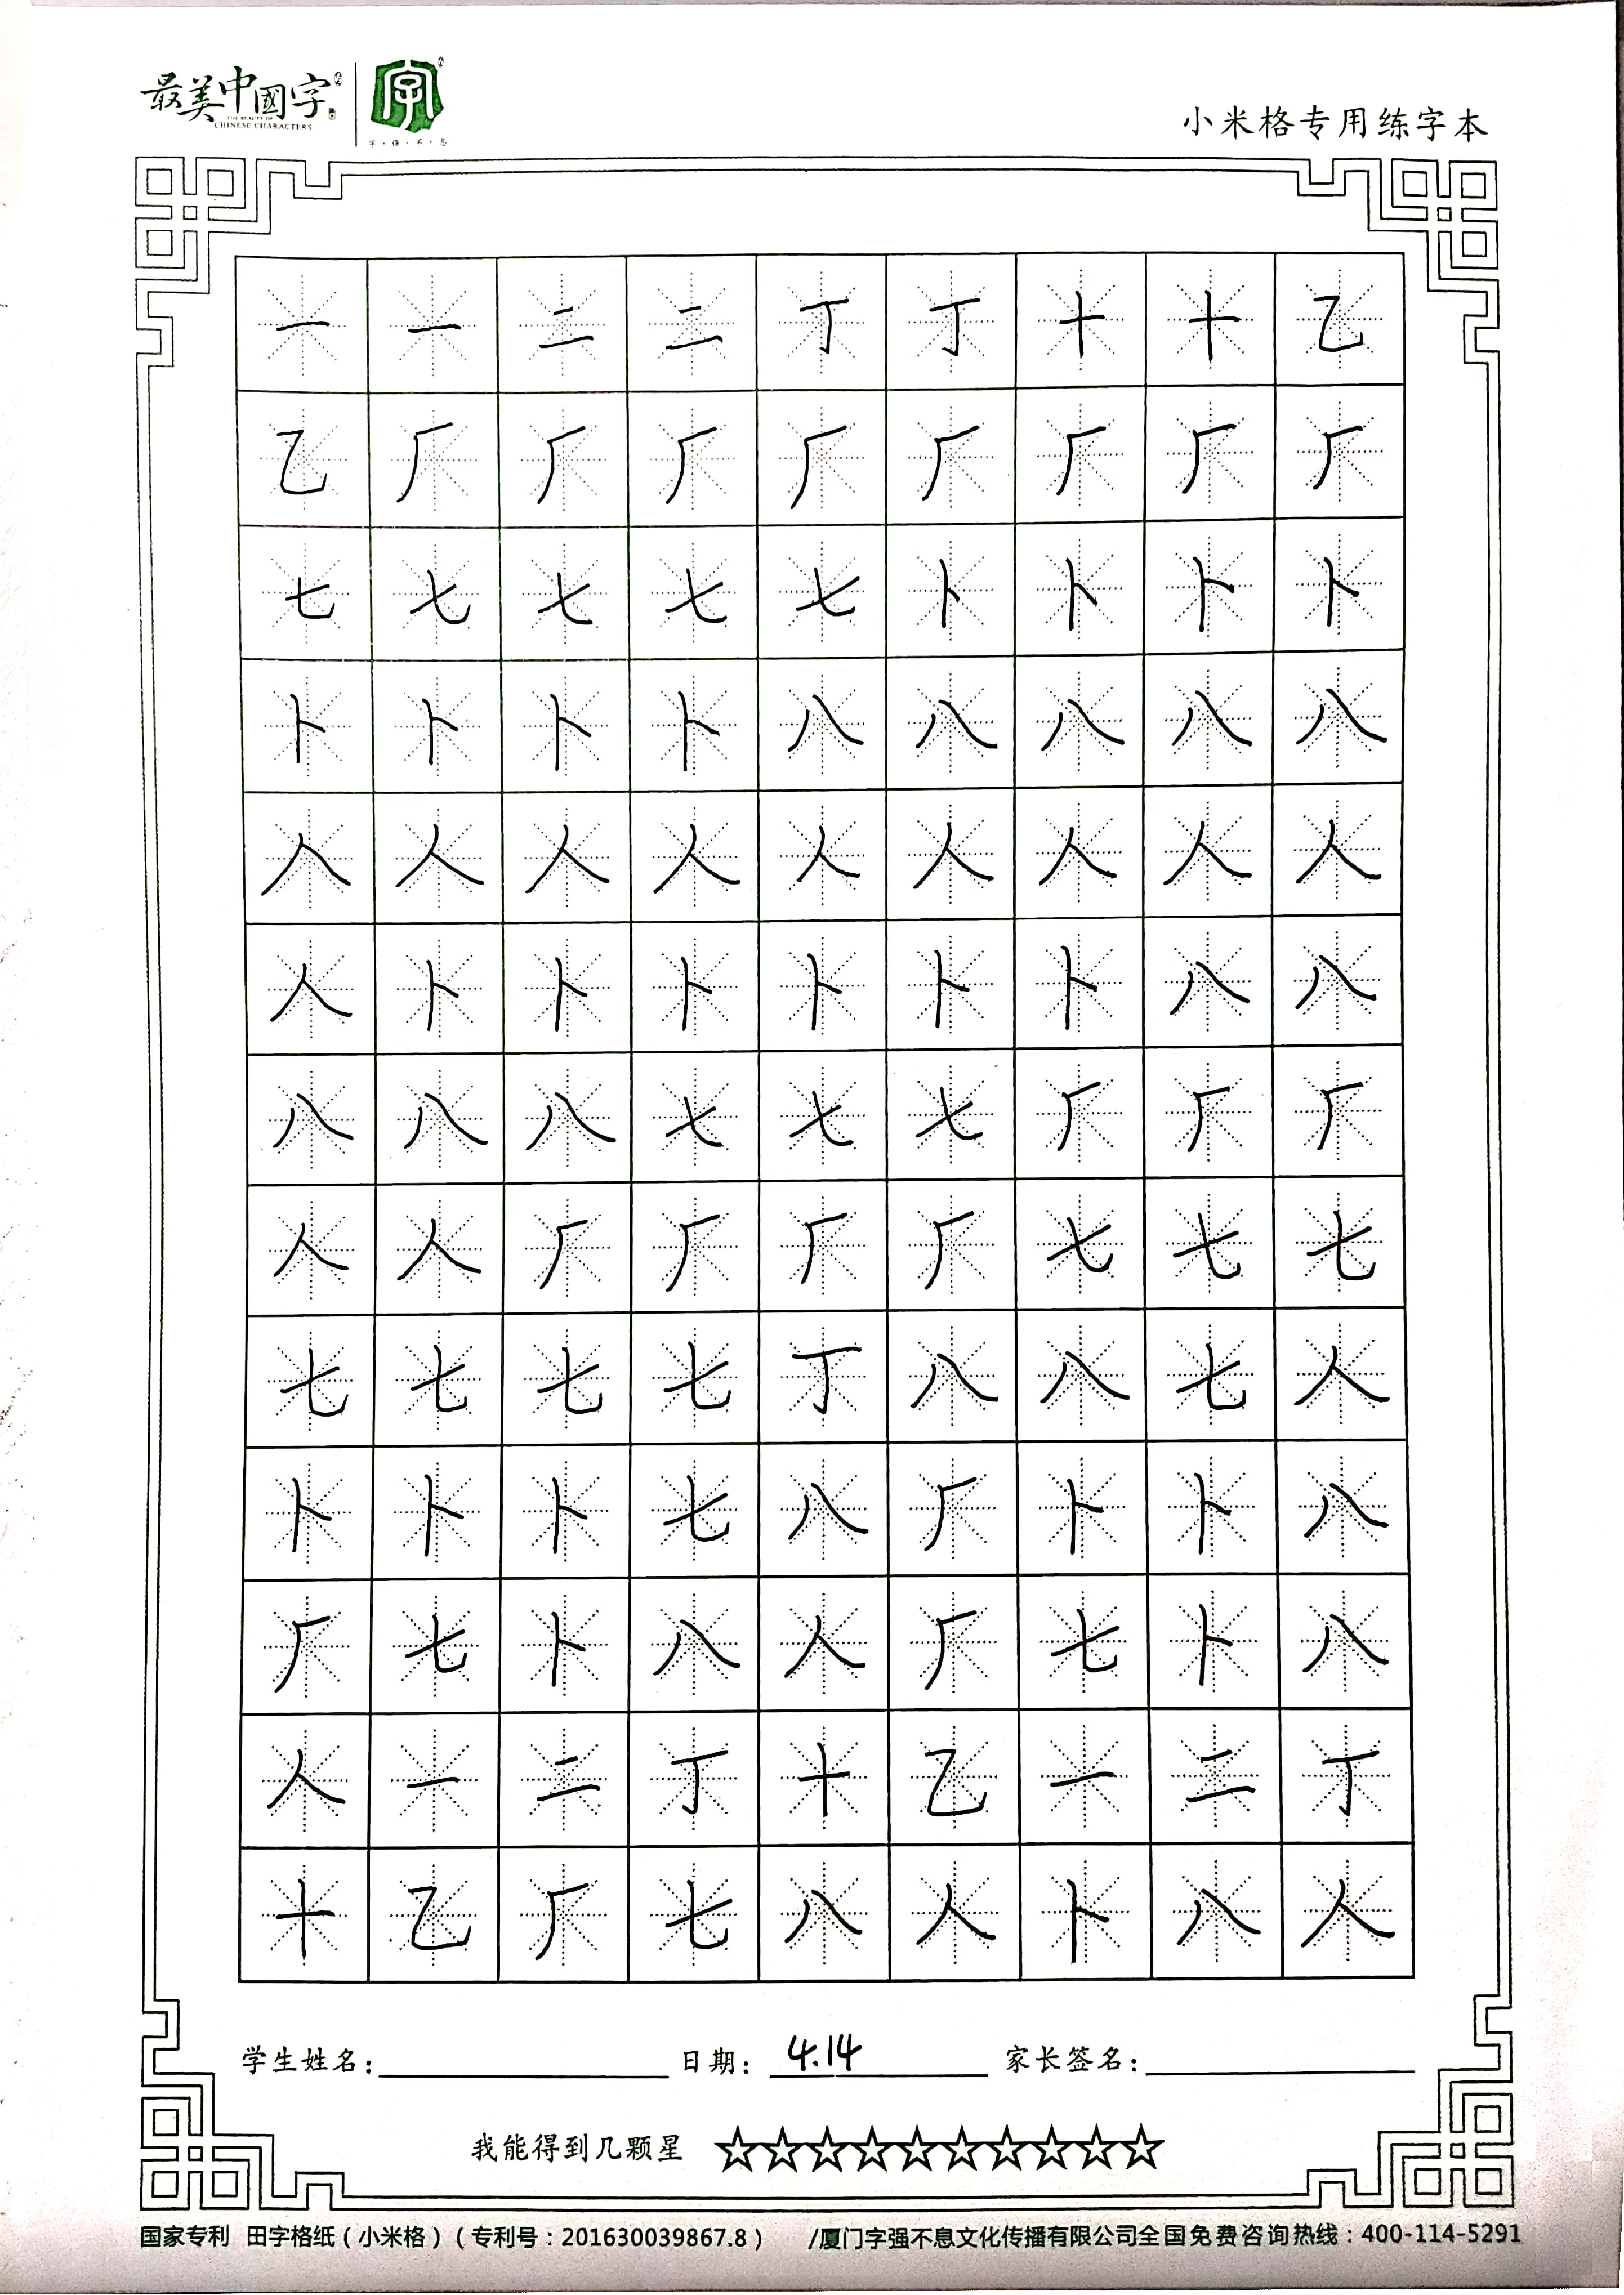 最美中國字
THE BEAUTY OF
CHINESE CHARACTERS
字·强·不·息
小米格专用练字本
一 一 二 二 丁 丁 十 十 乙
乙 厂 厂 厂 厂 厂 厂 厂 厂
七 七 七 七 七 卜 卜 卜 卜
卜 卜 卜 卜 八 八 八 八 八
人 人 人 人 人 人 人 人 人
人 卜 卜 卜 卜 卜 卜 八 八
八 八 八 七 七 七 厂 厂 厂
人 人 厂 厂 厂 厂 七 七 七
七 七 七 七 丁 八 八 七 人
卜 卜 卜 七 八 厂 卜 卜 八
厂 七 卜 八 人 厂 七 卜 八
人 一 二 丁 十 乙 一 二 丁
十 乙 厂 七 八 人 卜 八 人
学生姓名: 日期: 4.14 家长签名:
我能得到几颗星 ☆☆☆☆☆☆☆☆☆☆
国家专利 田字格纸(小米格)(专利号:201630039867.8) /厦门字强不息文化传播有限公司全国免费咨询热线:400-114-5291